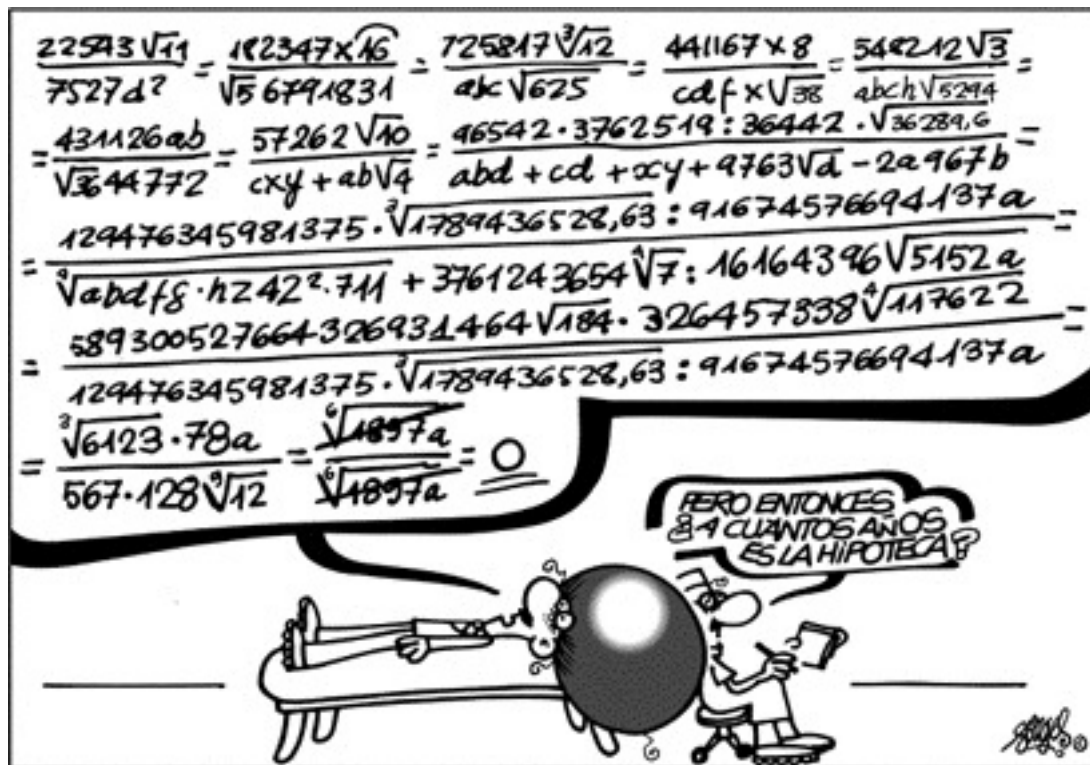 22543√11 / 7527d² = 182347×16 / √5 6791831 = 725817∛12 / abc√625 = 441167×8 / cdf×√38 = 548212√3 / abch√5294 =
= 431126ab / √36 44772 = 57262√10 / cxy+ab√4 = 96542·3762519:36442·√36289,6 / abd+cd+xy+9763√d−2a967b =
= 129476345981375·∛1789436528,63:91674576694137a / ∜abdfg·hz42²·711 + 3761243654∜7:16164396√5152a =
= 58930052766432693 1464√184·326457338∜117622 / 129476345981375·∛1789436528,63:91674576694137a =
= ∛6123·78a / 567·128⁹√12 = ⁶√1897a / ⁶√1897a = 0
PERO ENTONCES
¿A CUANTOS AÑOS
ES LA HIPOTECA?